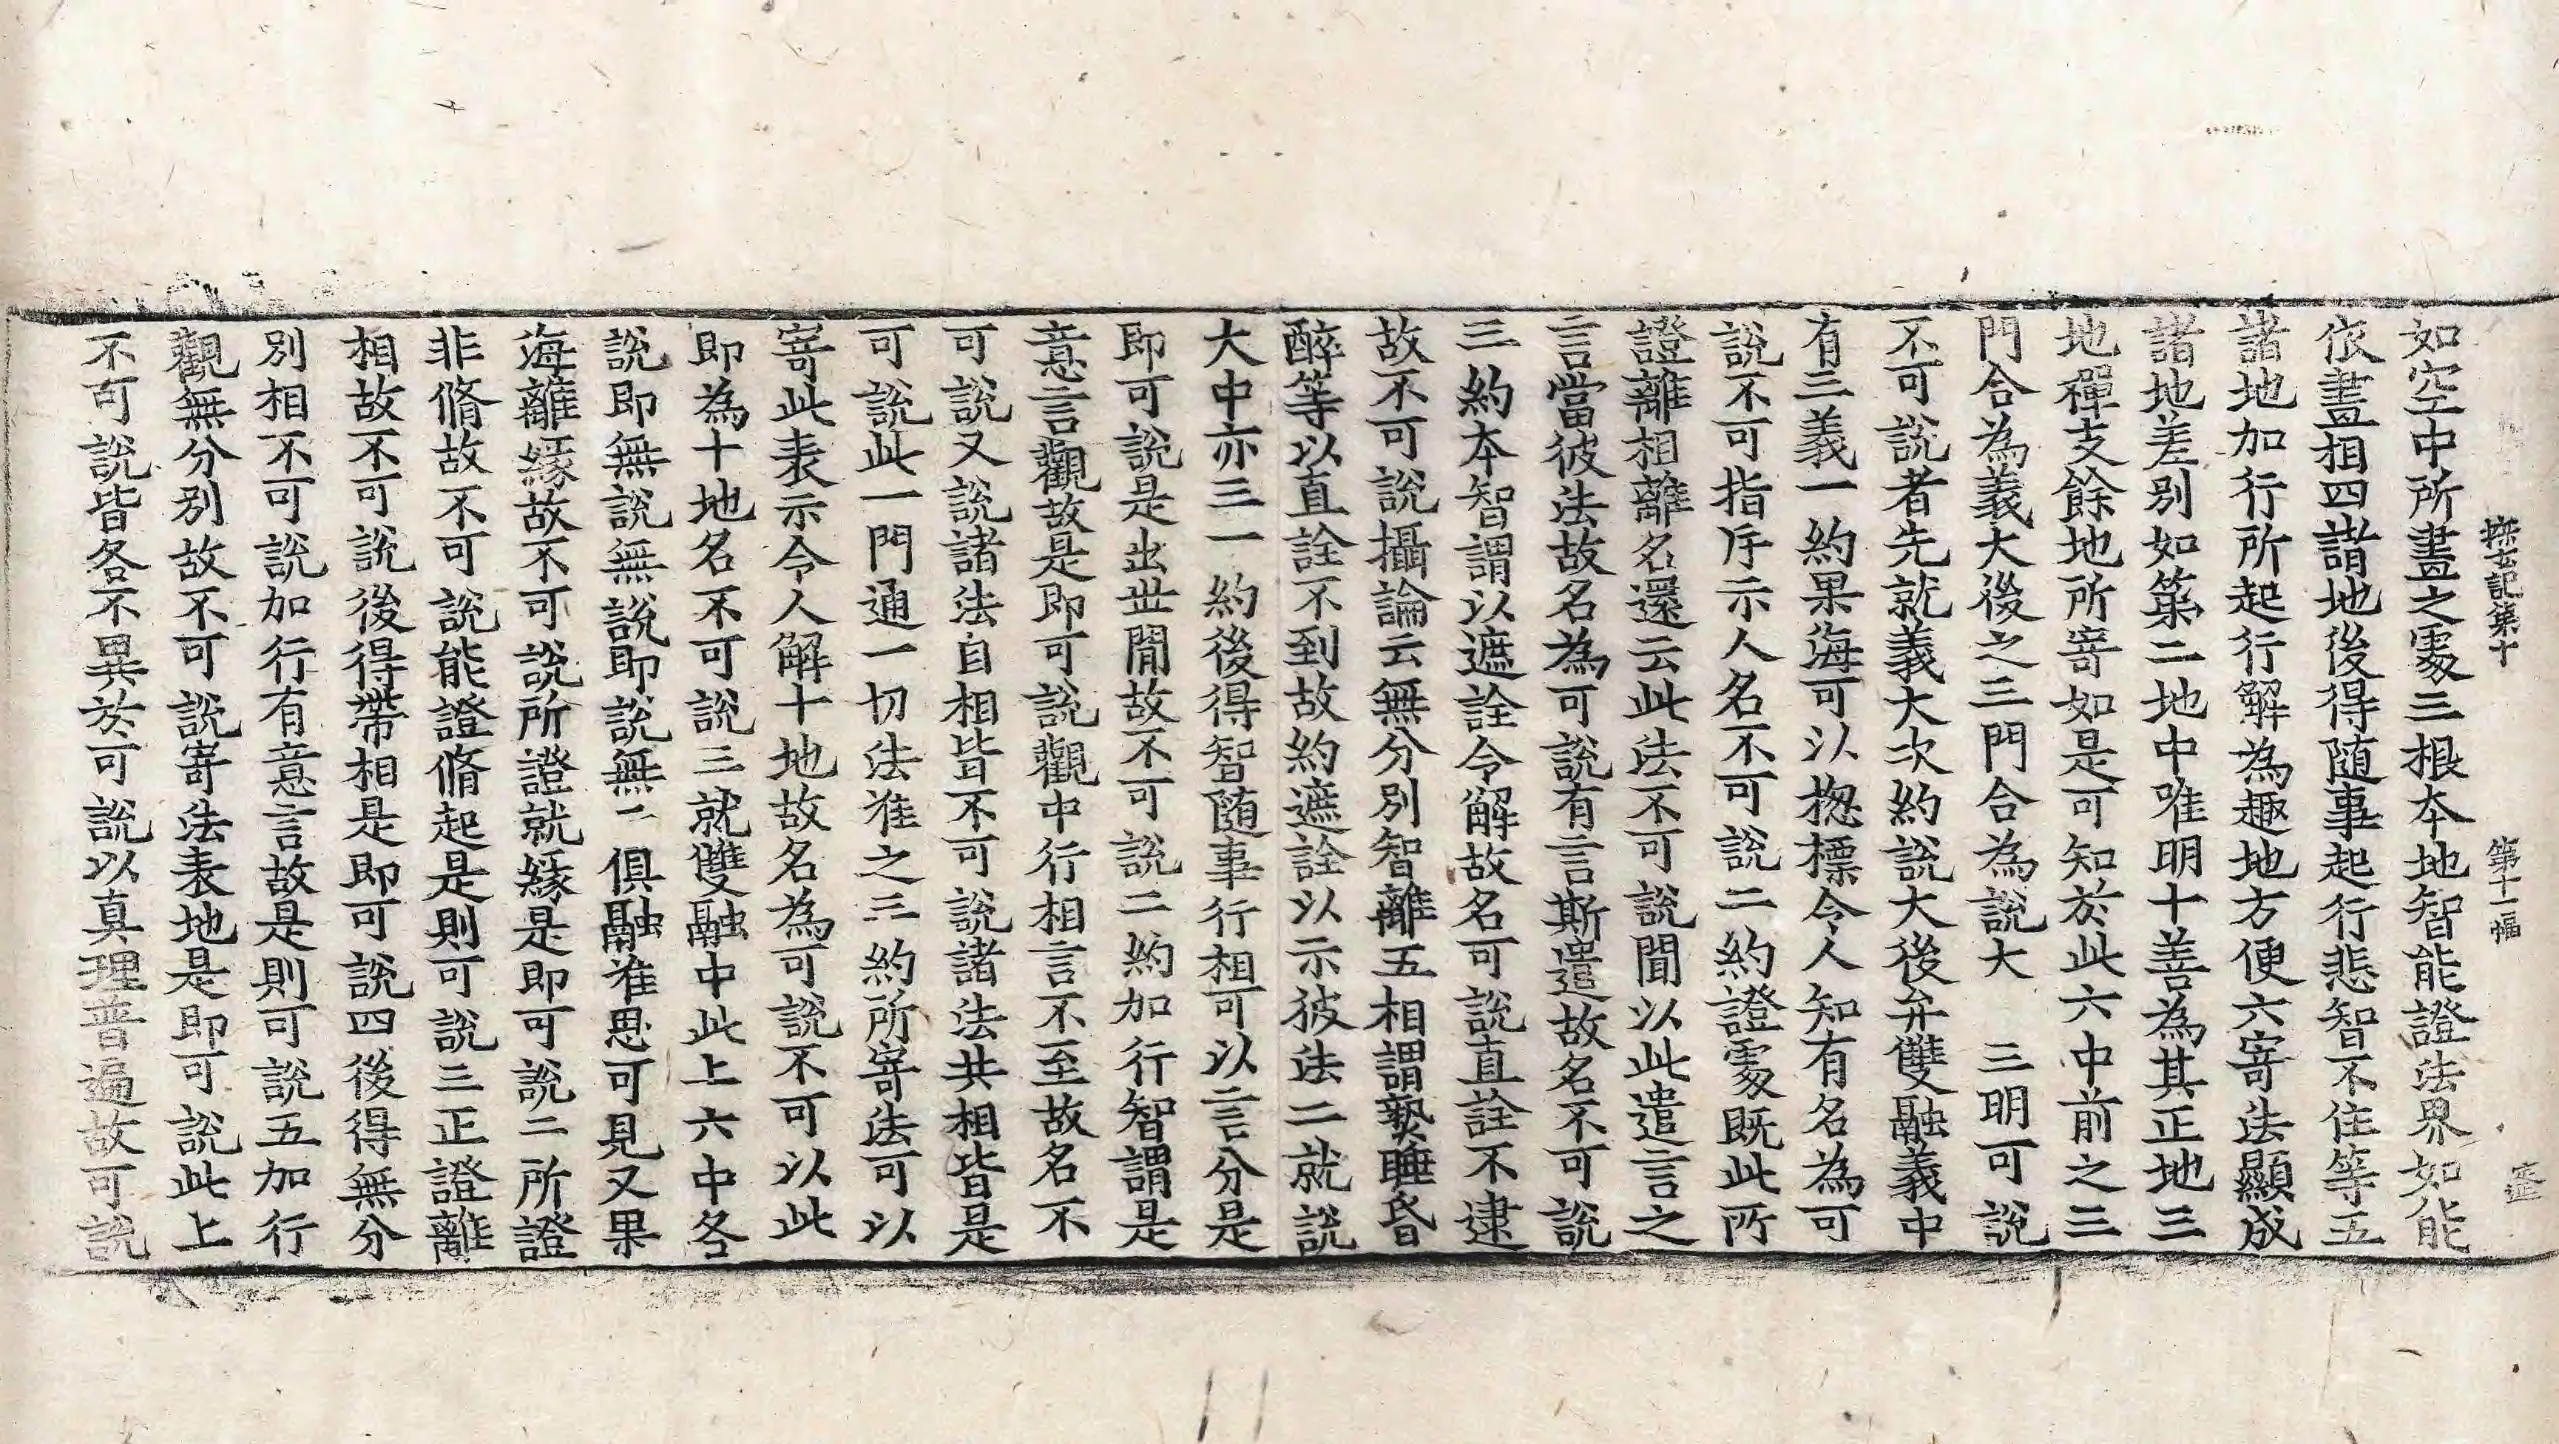 探玄記第十　第十一幅
如空中所畫之處三根本地智能證法界如能
依畫相四諸地後得随事起行悲智不住等五
諸地加行所起行解為趣地方便六寄法顯成
諸地差別如第二地中唯明十善為其正地三
地禪支餘地所寄如是可知於此六中前之三
門合為義大後之三門合為說大　三明可說
不可說者先就義大次約說大後弁雙融義中
有三義一約果海可以㧾標令人知有名為可
說不可指斥示人名不可說二約證處既此所
證離相離名還云此法不可說聞以此遣言之
言當彼法故名為可說有言斯遣故名不可說
三約本智謂以遮詮令解故名可說直詮不逮
故不可說攝論云無分別智離五相謂㷍睡昏
醉等以直詮不到故約遮詮以示彼法二就說
大中亦三一約後得智随事行相可以言分是
即可說是出世閒故不可說二約加行智謂是
意言觀故是即可說觀中行相言不至故名不
可說又說諸法自相皆不可說諸法共相皆是
可說此一門通一切法准之三約所寄法可以
寄此表示令人解十地故名為可說不可以此
即為十地名不可說三就雙融中此上六中各
說即無說無說即說無二俱融准思可見又果
海離緣故不可說所證就緣是即可說二所證
非脩故不可說能證脩起是則可說三正證離
相故不可說後得帶相是即可說四後得無分
別相不可說加行有意言故是則可說五加行
觀無分別故不可說寄法表地是即可說此上
不可說皆各不異於可說以真理普遍故可說